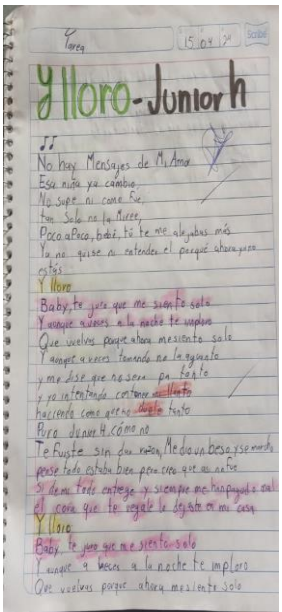 Tarea
15 04 24
Scribe
Y lloro - Junior h
No hay Mensajes de Mi Amor
Esa niña ya cambio,
No supe ni como fue,
tan solo no la Miree,
Poco a Poco, bebé, tú te me alejabas más
Ya no quise ni entender el porqué ahora ya no
estás
Y lloro
Baby, te juro que me siento solo
Y aunque a veces a la noche te imploro
Que vuelvas porque ahora me siento solo
Y aunque a veces tomando no la aguanto
y me dise que no sera pa tanto
y yo intentando contener mi llanto
haciendo como que no duele tanto
Puro Junior H, cómo no
Te fuiste sin dar razón, Me dio un beso y se marchó
pense todo estaba bien pero creo que así no fue
Si de mi todo entregé y siempre me han pagado mal
el cora que te regalé lo dejaste en mi casa
Y lloro
Baby te juro que me siento solo
Y aunque a veces a la noche te imploro
Que vuelvas porque ahora me siento solo